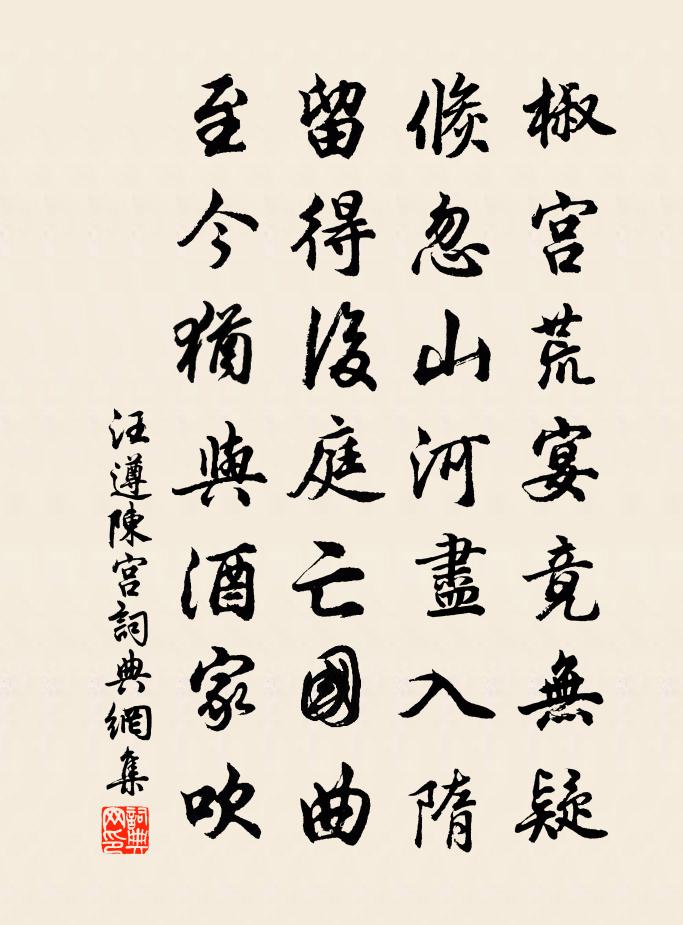 椒宫荒宴竟無疑
倐忽山河盡入隋
留得後庭亡國曲
至今猶與酒家吹
汪遵陳宫詞典網集
詞典网印